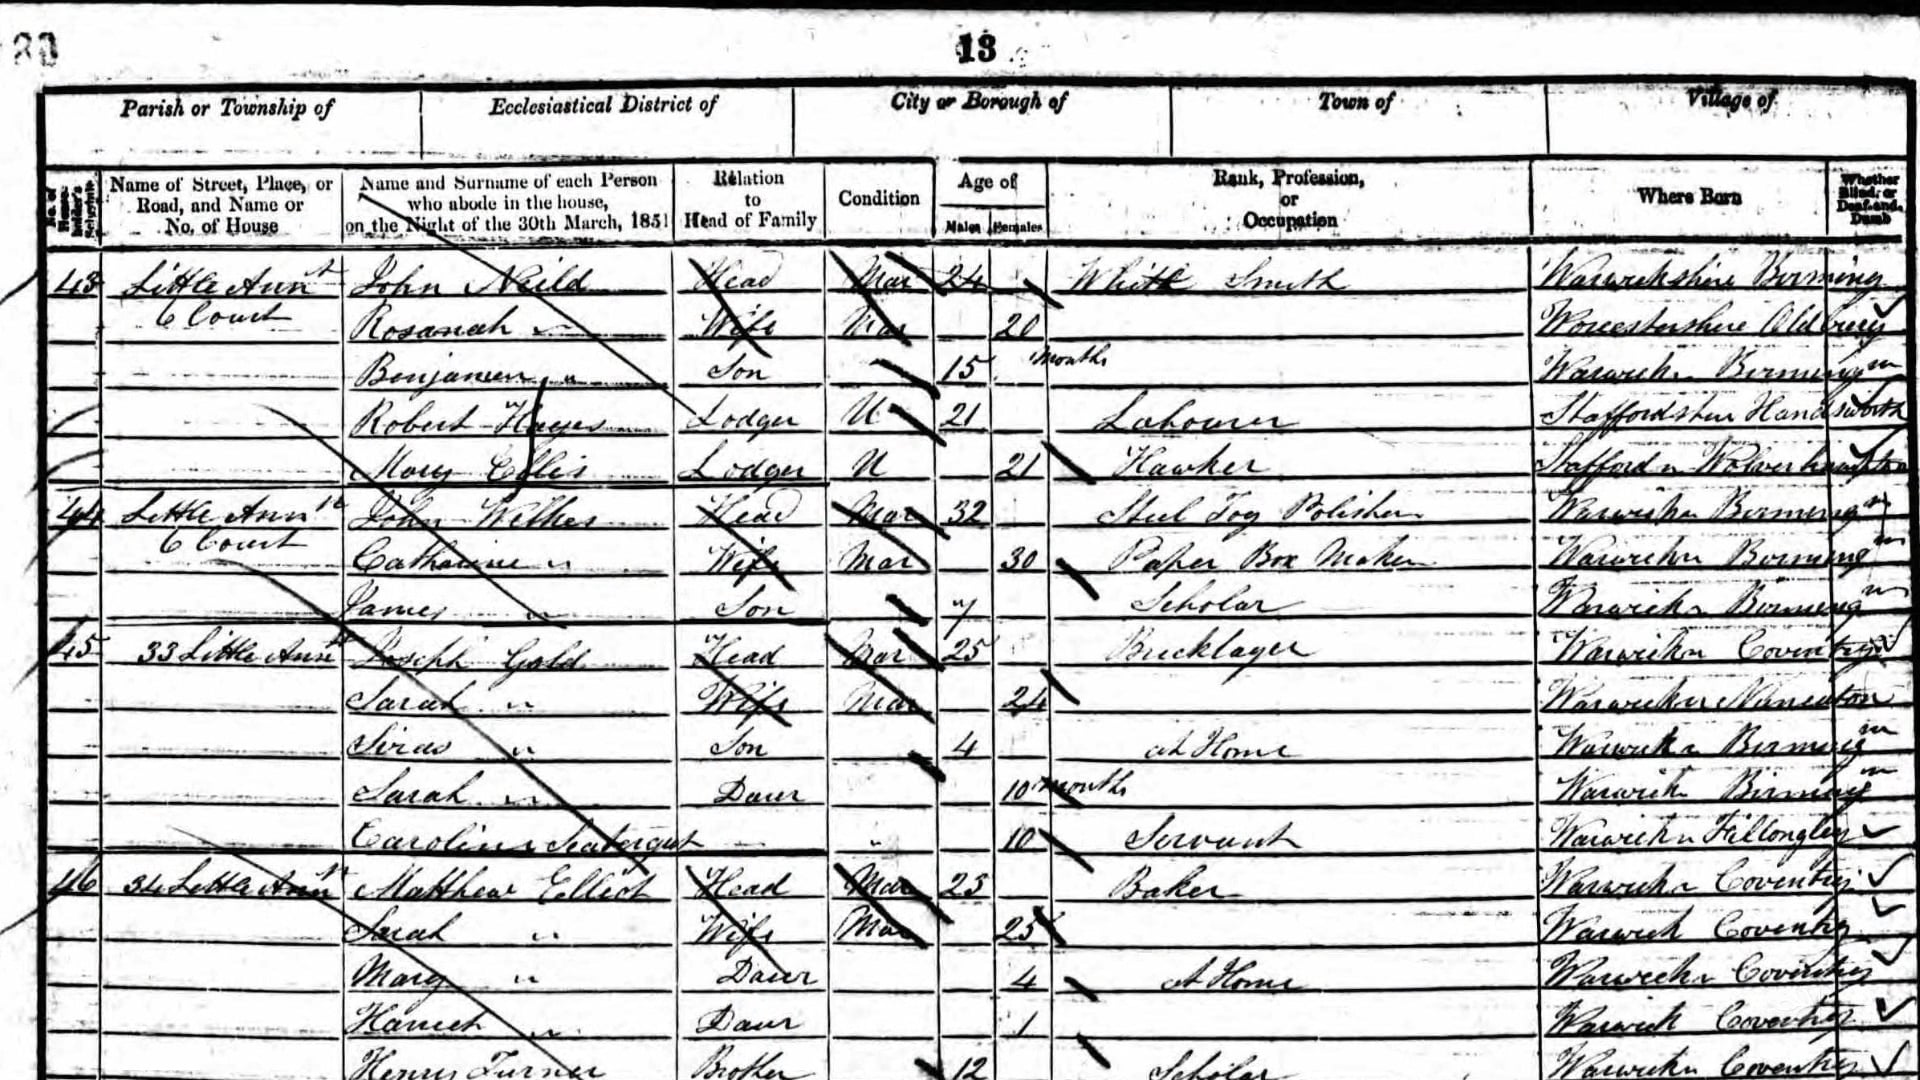 13
Parish or Township of Ecclesiastical District of City or Borough of Town of Village of
No. of House-holder's Schedule Name of Street, Place, or Road, and Name or No. of House Name and Surname of each Person who abode in the house, on the Night of the 30th March, 1851 Relation to Head of Family Condition Age of Males Females Rank, Profession, or Occupation Where Born Whether Blind, or Deaf-and-Dumb
43 Little Ann St John Neild Head Mar 24 White Smith Warwickshire Birming
6 Court Rosanah " Wife Mar 20 Worcestershire Oldbury
Benjamen " Son 15 months Warwick Birmingm
Robert Hayes Lodger U 21 Labourer Staffordshire Handsworth
Mary Ellis Lodger U 21 Hawker Stafford Wolverhampton
44 Little Ann St John Wilkes Head Mar 32 Steel Toy Polisher Warwick Birmingm
6 Court Catharine " Wife Mar 30 Paper Box Maker Warwick Birmingm
James " Son 7 Scholar Warwick Birmingm
45 33 Little Ann St Joseph Gold Head Mar 25 Bricklayer Warwick Coventry
Sarah " Wife Mar 24 Warwick Nuneaton
" Son 4 at Home Warwick Birmingm
Sarah " Daur 10 months Warwick Birmingm
Caroline " 10 Servant Warwick Fillongley
46 34 Little Ann St Matthew Elliot Head Mar 23 Baker Warwick Coventry
Sarah " Wife Mar 25 Warwick Coventry
Mary " Daur 4 at Home Warwick Coventry
" Daur 1 Warwick Coventry
Henry Turner Brother 12 Scholar Warwick Coventry